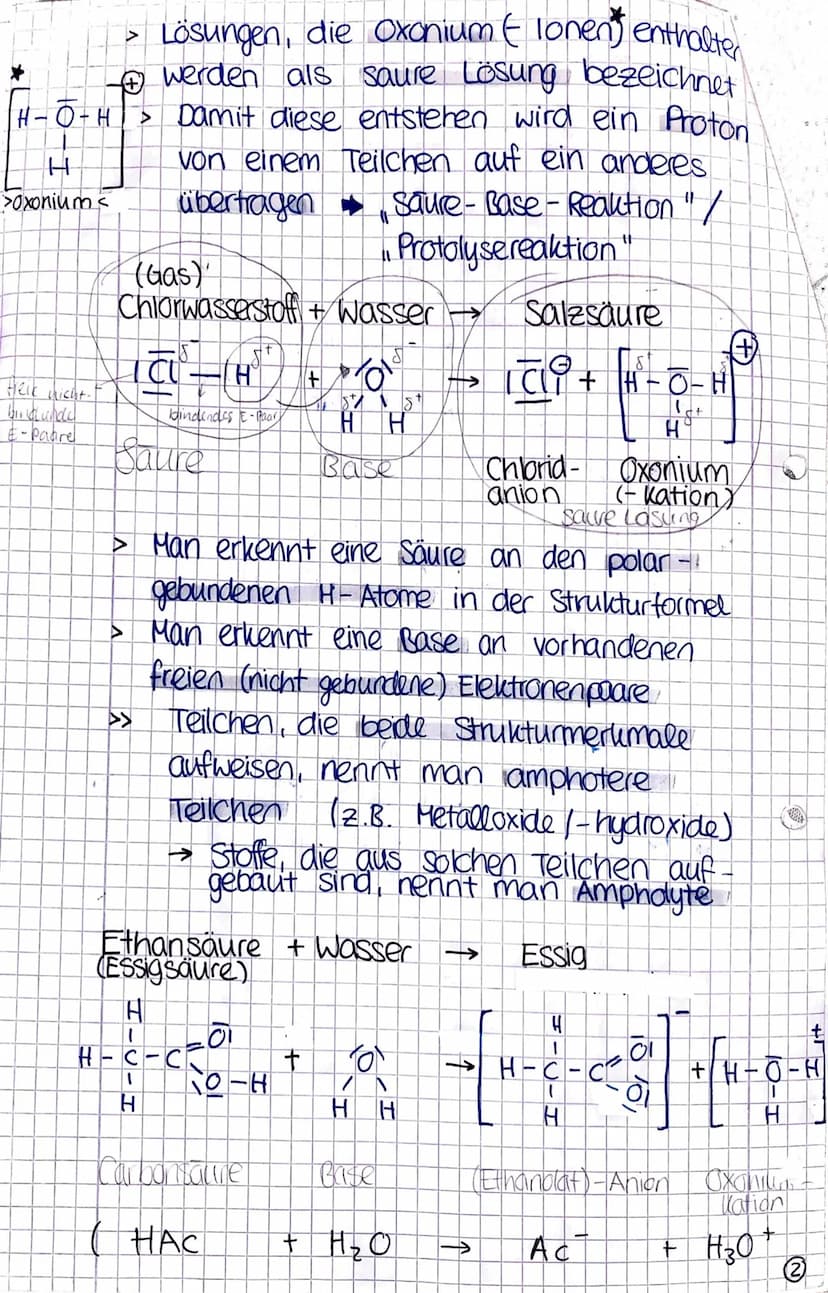 > Lösungen, die Oxonium(-Ionen)* enthalten
werden als saure Lösung bezeichnet
> Damit diese entstehen wird ein Proton
von einem Teilchen auf ein anderes
übertragen ➡ „Säure-Base-Reaktion"/
„Protolysereaktion"
*
[H-O-H]⊕
H
>Oxonium<
(Gas)
Chlorwasserstoff + Wasser → Salzsäure
|Cl δ- — H δ+ + O δ- → |Cl|⊖ + [H δ+ - O - H δ+]⊕
δ+ δ+ δ+
H H H
bindendes E-Paar
nicht-
bindende
E-Paare
Säure Base Chlorid- Oxonium
anion (-Kation)
saure Lösung
> Man erkennt eine Säure an den polar-
gebundenen H-Atome in der Strukturformel
> Man erkennt eine Base an vorhandenen
freien (nicht gebundene) Elektronenpaare
>> Teilchen, die beide Strukturmerkmale
aufweisen, nennt man amphotere
Teilchen (z.B. Metalloxide/-hydroxide)
→ Stoffe, die aus solchen Teilchen auf-
gebaut sind, nennt man Ampholyte
Ethansäure + Wasser → Essig
(Essigsäure)
H H
O| O|
H-C-C + O → [H-C-C]⁻ + [H-O-H]+
O-H O|
H H H H H
Carbonsäure Base (Ethanolat)-Anion Oxonium-
kation
( HAc + H₂O → Ac⁻ + H₃O⁺
②